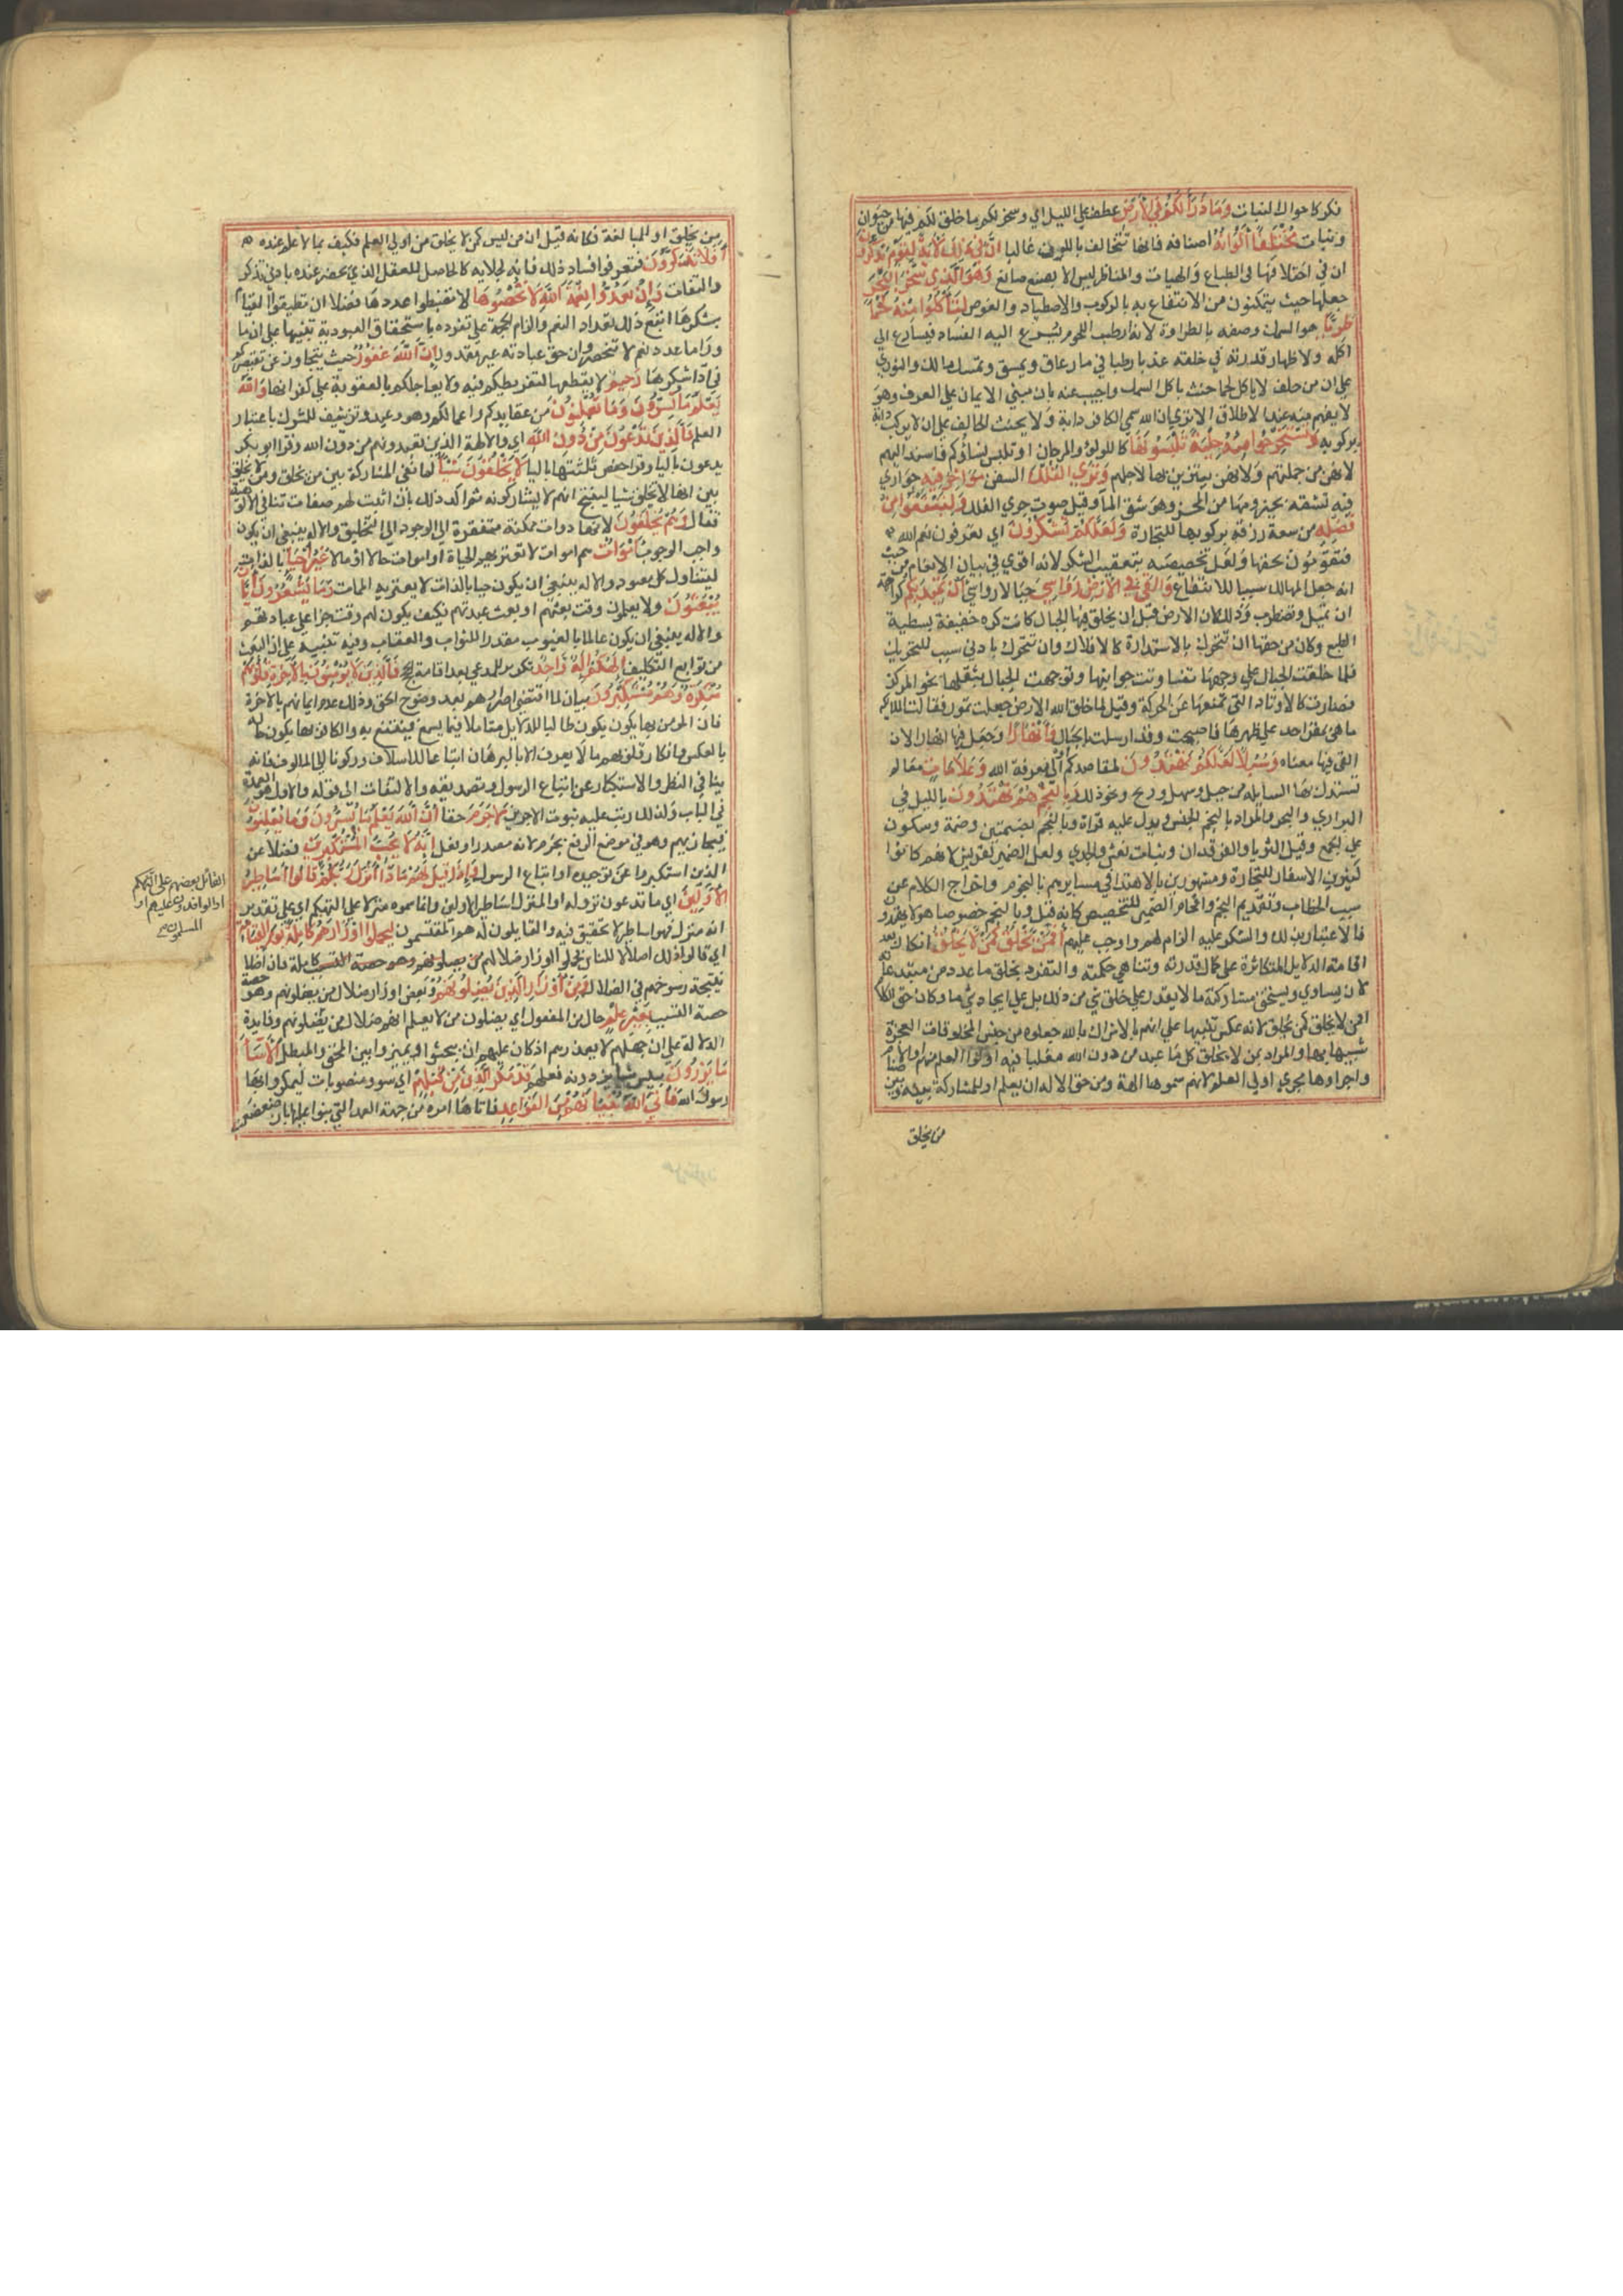 فكر كاحوال لنبات وَمَا ذَرَأَ لَكُمْ فِي الأَرْضِ عطف علي الليل اي وسخر لكم ما خلق لكم فيها من حيوان
ونبات مُخْتَلِفًا أَلْوَانُهُ اصنافه فانها تتخالف باللون غالبا إِنَّ فِي ذَلِكَ لَآيَةً لِقَوْمٍ يَذَّكَّرُونَ
ان في اختلافها في الطباع والهيات والمناظر ليس الا بصنع صانع وَهُوَ الَّذِي سَخَّرَ الْبَحْرَ
جعلها حيث يتمكنون من الانتفاع به بالركوب والاصطياد والغوص لِتَأْكُلُوا مِنْهُ لَحْمًا
طَرِيًّا هو السمك وصفه بالطراوة لانه ارطب اللحوم يسرع اليه الفساد فيسارع الي
اكله ولاظهار قدرته في خلقه عذبا رطبا في ما زعاق وتمسك مالك والثوري
علي ان من حلف لا ياكل لحما حنث باكل السمك واجيب عنه بان مبني الايمان علي العرف وهو
لا يفهم منه عند الاطلاق الا تري ان الله سمي الكافر دابة ولا يحنث الحالف علي ان لا يركب دابة
بركوبه وَتَسْتَخْرِجُوا مِنْهُ حِلْيَةً تَلْبَسُونَهَا كاللولؤ والمرجان اي تلبس نساؤكم فاسند اليهم
لانهن من جملتهم ولانهن يتزين بها لاجلهم وَتَرَى الْفُلْكَ السفن مَوَاخِرَ فِيهِ جواري
فيه تشقه بحيزومها من المخر وهو شق المآ وقيل صوت جري الفلك وَلِتَبْتَغُوا مِنْ
فَضْلِهِ من سعة رزقه بركوبها للتجارة وَلَعَلَّكُمْ تَشْكُرُونَ اي تعرفون نعم الله
فتقومون بحقها ولعل تخصيصه بتعقيب الشكر لانه اقوي في بيان الانعام من حيث
انه جعل المهالك سببا للانتفاع وَأَلْقَى فِي الأَرْضِ رَوَاسِيَ جبالا رواسي أَنْ تَمِيدَ بِكُمْ كراهة
ان تميل وتضطرب وذلك لان الارض قبل ان يخلق فيها الجبال كانت كره خفيفة بسطية
الطبع وكان من حقها ان تتحرك بالاستدارة كالافلاك وان تتحرك بادني سبب للتحريك
فلما خلقت الجبال علي وجهها تفاوتت جوانبها وتوجهت الجبال بثقلها نحو المركز
فصارت كالاوتاد التي تمنعها عن الحركة وقيل لما خلق الله الارض جعلت تمور فقالت الملايكه
ما هي بمقر احد علي ظهرها فاصبحت وقد ارسلت بالجبال وَأَنْهَارًا وجعل فيها انهارا لان
القي فيها معناه وَسُبُلًا لَعَلَّكُمْ تَهْتَدُونَ لمقاصدكم او الي معرفة الله وَعَلَامَاتٍ معالم
تستدل بها السابله من جبل وسهل وريح ونحو ذلك وَبِالنَّجْمِ هُمْ يَهْتَدُونَ بالليل في
البراري والبحر والمراد بالنجم الجنس ويدل عليه قراة وبالنجم بضمتين وضمة وسكون
علي الجمع وقيل الثريا والفرقدان وبنات نعش والجدي ولعل الضمير لقريش لانهم كانوا
كثيري الاسفار للتجارة ومشهورين بالاهتدا في مسايرهم بالنجوم واخراج الكلام عن
سبب الخطاب وتقديم النجم واقحام الضمير للتخصيص كانه قيل وبالنجم خصوصا هولا يهتدون
فالاعتبار بذلك والشكر عليه الزام لهم واوجب عليهم أَفَمَنْ يَخْلُقُ كَمَنْ لَا يَخْلُقُ انكار بعد
اقامة الدلايل المتكاثرة علي كمال قدرته وتناهي حكمته والتفرد بخلق ما عدد من مبتدعاته
لان يساوي ويستحق مشاركته ما لا يقدر علي خلق شي من ذلك بل علي ايجاد شي ما وكان حق الكلام
افمن لا يخلق كمن يخلق لانه عكس تنبيها علي انهم بالاشراك بالله جعلوه من جنس المخلوقات العجزة
شبيها بها والمراد بمن لا يخلق كل ما عبد من دون الله مغلبا فيه اولوا العلم منهم او الاصنام
واجراوها مجري اولي العلم لانهم سموها الهة ومن حق الاله ان يعلم او للمشاركة بينه وبين
من يخلق
من يخلق او للمبالغة فكانه قيل ان من ليس كمن لا يخلق من اولي العلم فكيف بما لا علم عنده
أَفَلَا تَذَكَّرُونَ فتعرفوا فساد ذلك فانه لجلايه كالحاصل للعقل الذي يحضر عنده بادني تذكر
والتفات وَإِنْ تَعُدُّوا نِعْمَةَ اللَّهِ لَا تُحْصُوهَا لا تضبطوا عددها فضلا ان تطيقوا القيام
بشكرها اتبع ذلك تعداد النعم والزام الحجة علي تفرده باستحقاق العبودية تنبيها علي ان ما
ورا ما عدد نعم لا تنحصر وان حق عبادته غير مقدور إِنَّ اللَّهَ لَغَفُورٌ حيث يتجاوز عن تقصيركم
في ادا شكرها رَحِيمٌ لا يقطعها لتفريطكم فيه ولا يعاجلكم بالعقوبة علي كفرانها وَاللَّهُ
يَعْلَمُ مَا تُسِرُّونَ وَمَا تُعْلِنُونَ من عقايدكم واعمالكم وهو وعيد وتزييف للشرك باعتبار
العلم وَالَّذِينَ تَدْعُونَ مِنْ دُونِ اللَّهِ اي والالهة الذين تعبدونهم من دون الله وقرا ابو بكر
يدعون باليا وقرا حفص ثلثتها باليا لَا يَخْلُقُونَ شَيْئًا لما نفي المشاركة بين من يخلق ومن لا يخلق
بين انها لا تخلق شيا لينتج انهم لا يشاركونه ثم اكد ذلك بان اثبت لهم صفات تنافي الالوهية
فقال وَهُمْ يُخْلَقُونَ لانها ذوات ممكنة مفتقرة الي الوجود الي التخليق والاله ينبغي ان يكون
واجب الوجود أَمْوَاتٌ هم اموات لا تعتريهم الحياة او اموات حالا او مالا غَيْرُ أَحْيَاءٍ بالذات
ليتناول كل معبود والاله ينبغي ان يكون حيا بالذات لا يعتريه الممات وَمَا يَشْعُرُونَ أَيَّانَ
يُبْعَثُونَ ولا يعلمون وقت بعثهم او بعث عبدتهم فكيف يكون لهم وقت جزا علي عبادتهم
والاله ينبغي ان يكون عالما بالغيوب مقدرا للثواب والعقاب وفيه تنبيه علي ان البعث
من توابع التكليف إِلَهُكُمْ إِلَهٌ وَاحِدٌ تكرير للمدعي بعد اقامة الحجج فَالَّذِينَ لَا يُؤْمِنُونَ بِالْآخِرَةِ قُلُوبُهُمْ
مُنْكِرَةٌ وَهُمْ مُسْتَكْبِرُونَ بيان لما اقتضي اصرارهم بعد وضوح الحق وذلك عدم ايمانهم بالاخرة
فان المومن بها يكون يكون طالبا للدلايل متاملا فيما يسمع فينتفع به والكافر بها يكون حاله
بالعكس وانكار قلوبهم ما لا يعرف الا بالبرهان اتباعا للاسلاف وركونا الي المالوف فانه
ينافي النظر والاستكبار عن اتباع الرسول وتصديقه والالتفات الي قوله والاول هو العمدة
في الباب ولذلك رتب عليه ثبوت الاخرين لَا جَرَمَ حقا أَنَّ اللَّهَ يَعْلَمُ مَا يُسِرُّونَ وَمَا يُعْلِنُونَ
فيجازيهم وهو في موضع الرفع بجرم لانه مصدر او فعل إِنَّهُ لَا يُحِبُّ الْمُسْتَكْبِرِينَ فضلا عن
الذين استكبروا عن توحيده او اتباع الرسول وَإِذَا قِيلَ لَهُمْ مَاذَا أَنْزَلَ رَبُّكُمْ قَالُوا أَسَاطِيرُ
الأَوَّلِينَ اي ما تدعون نزوله او المنزل اساطير الاولين وانما سموه منزلا علي التهكم اي علي تقدير
انه منزل فهو اساطير لا تحقيق فيه والقايلون له هم المقتسمون لِيَحْمِلُوا أَوْزَارَهُمْ كَامِلَةً يَوْمَ الْقِيَامَةِ
اي قالوا ذلك اضلالا للناس فحملوا اوزار ضلالهم كاملة فان اضلالهم
نتيجة رسوخهم في الضلال وَمِنْ أَوْزَارِ الَّذِينَ يُضِلُّونَهُمْ وبعض اوزار ضلال من يضلونهم وهو حصة
حصة التسبب بِغَيْرِ عِلْمٍ حال من المفعول اي يضلون من لا يعلم انهم ضلال من يضلونهم وفايدة
الدلالة علي ان جهلهم لا يعذرهم اذ كان عليهم ان يبحثوا ويميزوا بين المحق والمبطل أَلَا سَاءَ
مَا يَزِرُونَ بيس شيا يزرونه فعلهم قَدْ مَكَرَ الَّذِينَ مِنْ قَبْلِهِمْ اي سووا منصوبات ليمكروا بها
رسول الله فَأَتَى اللَّهُ بُنْيَانَهُمْ مِنَ الْقَوَاعِدِ فاتاها امره من جهة العمد التي بنوا عليها بان ضعضعت
القائل بعضهم على التهكم
او الوافدون عليهم او
المسلمون